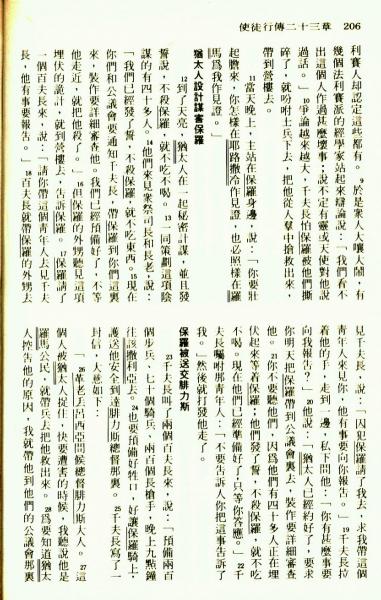 使徒行傳二十三章 206
利賽人却認定這些都有。9於是眾人大嚷大鬧,有
幾個法利賽派的經學家站起來辯論說:「我們看不
出這個人作過甚麼壞事;說不定有靈或天使對他說
過話。」10爭論越來越大,千夫長怕保羅被他們撕
碎了,就吩咐士兵下去,把他從人羣中搶救出來,
帶到營樓去。
11當天晚上,主站在保羅身邊,說:「你要壯
起膽來,你怎樣在耶路撒冷作見證,也必照樣在羅
馬爲我作見證。」
猶太人設計謀害保羅
12到了天亮,猶太人在一起秘密計謀,並且發
誓說,不殺保羅,就不吃不喝。13一同策劃這項陰
謀的有四十多人。14他們來見眾祭司長和長老,說:
「我們已經發了誓,不殺保羅,就不吃東西。15現在
你們和公議會要通知千夫長,帶保羅到你們這裏
來,裝作要詳細審查他。我們已經預備好了,不等
他走近,就把他殺了。」16但保羅的外甥聽見這項
埋伏的詭計,就到營樓去,告訴保羅。17保羅請了
一個百夫長來,說:「請你帶這個青年人去見千夫
長,他有事要報告。」18百夫長就帶保羅的外甥去
見千夫長,說:「囚犯保羅請了我去,求我帶這個
青年人來見你,他有事要向你報告。」19千夫長拉
着他的手,走到一邊,私下問他:「你有甚麼事要
向我報告?」20他說:「猶太人已經約好了,要求
你明天把保羅帶到公議會裏去,裝作要詳細審查
他。21你不要聽他們,因爲他們有四十多人正在埋
伏起來等着保羅;他們發了誓,不殺保羅,就不吃
不喝。現在他們已經準備好了,只等你答應。」22千
夫長囑咐那青年人:「不要告訴人你把這事告訴了
我。」然後就打發他走了。
保羅被送交腓力斯
23千夫長叫了兩個百夫長來,說:「預備兩百
個步兵、七十個騎兵、兩百個長槍手,晚上九點鐘
往該撒利亞去。24也要預備好牲口,好讓保羅騎上,
護送他安全到達腓力斯總督那裏。25千夫長寫了一
封信,大意如下:
「26革老丟呂西亞問候總督腓力斯大人。27這
個人被猶太人捉住,快要遭害的時候,我聽說他是
羅馬公民,就帶兵去把他救出來。28爲要知道猶太
人控告他的原因,我就帶他到他們的公議會那裏